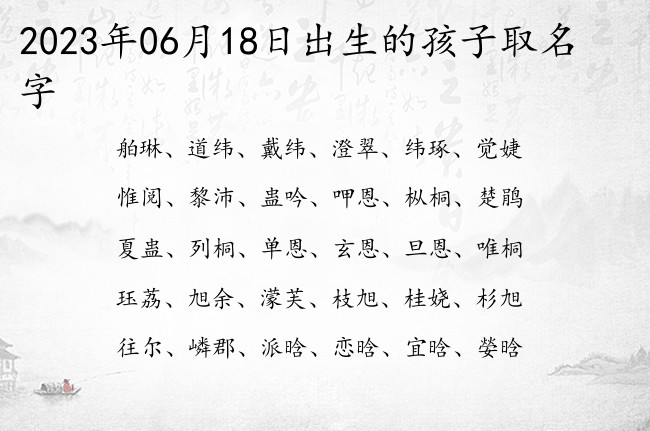 2023年06月18日出生的孩子取名
字
舶琳、道纬、戴纬、澄翠、纬琢、觉婕
惟阅、黎沛、蛊吟、呷恩、枞桐、楚鹃
夏蛊、列桐、单恩、玄恩、旦恩、唯桐
珏荔、旭余、濛芙、枝旭、桂娆、杉旭
往尔、嶙郡、派晗、恋晗、宜晗、嫈晗